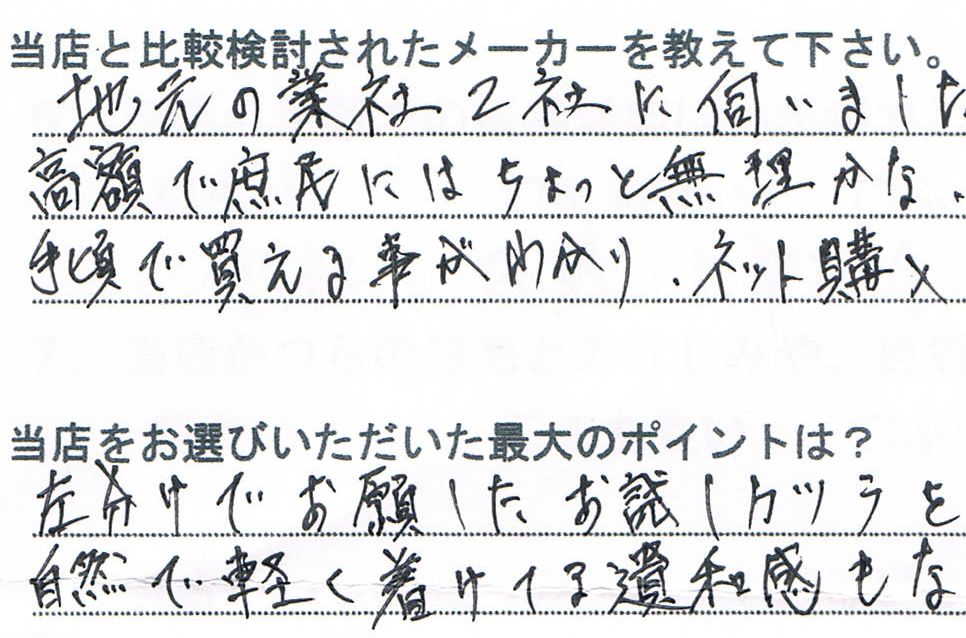 当店と比較検討されたメーカーを教えて下さい。
地元の業社2社に伺いました
高額で庶民にはちょっと無理かな、
手頃で買える事がわかり、ネット購入
当店をお選びいただいた最大のポイントは？
左分けでお願したお試しカツラを
自然で軽く着けてる遺和感もな